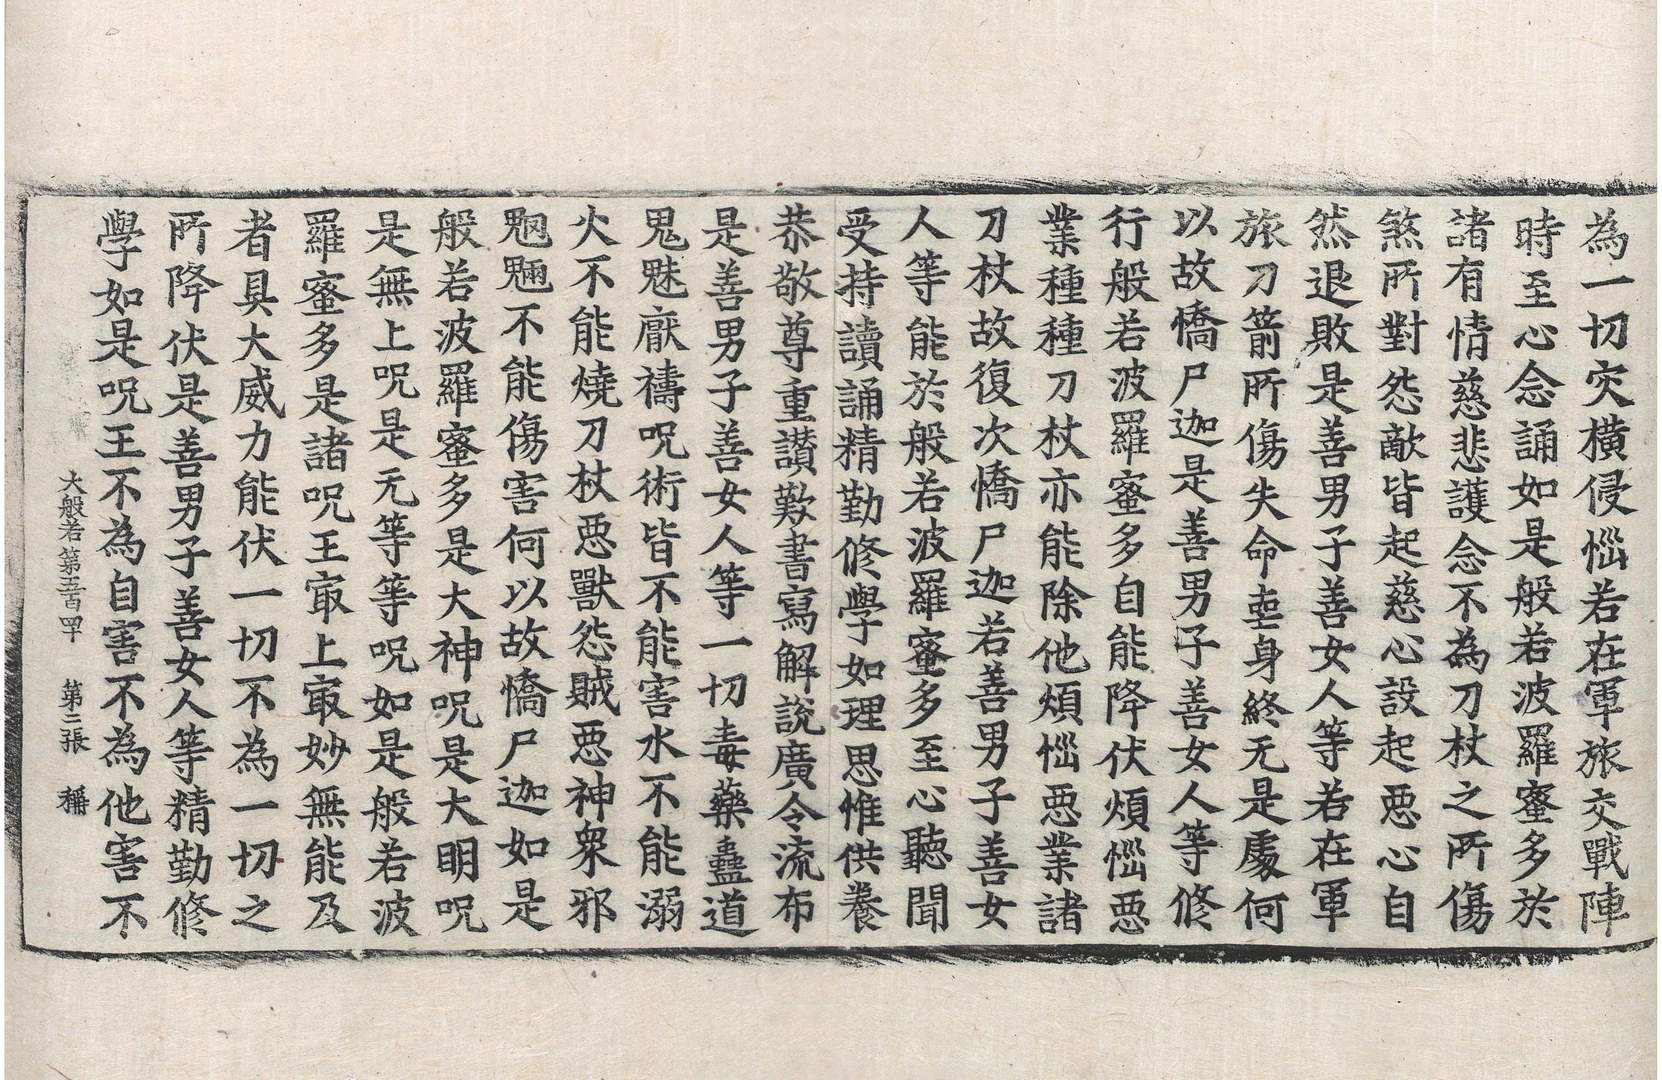 為一切灾横侵惱若在軍旅交戰陣
時至心念誦如是般若波羅蜜多於
諸有情慈悲護念不為刀杖之所傷
煞所對怨敵皆起慈心設起惡心自
然退敗是善男子善女人等若在軍
旅刀箭所傷失命喪身終无是處何
以故憍尸迦是善男子善女人等修
行般若波羅蜜多自能降伏煩惱惡
業種種刀杖亦能除他煩惱惡業諸
刀杖故復次憍尸迦若善男子善女
人等能於般若波羅蜜多至心聽聞
受持讀誦精勤修學如理思惟供養
恭敬尊重讃歎書寫解說廣令流布
是善男子善女人等一切毒藥蠱道
鬼魅厭禱呪術皆不能害水不能溺
火不能燒刀杖惡獸怨賊惡神衆邪
魍魎不能傷害何以故憍尸迦如是
般若波羅蜜多是大神呪是大明呪
是無上呪是无等等呪如是般若波
羅蜜多是諸呪王㝡上㝡妙無能及
者具大威力能伏一切不為一切之
所降伏是善男子善女人等精勤修
學如是呪王不為自害不為他害不
大般若第五百四十 第二張 稱